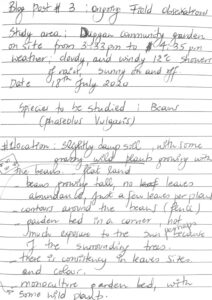 Blog Post # 3 : ongoing Field observations
Study area : Duggan community garden
on site from 3:33 pm to 4:35 pm
weather : cloudy and windy 12°c showers
of rain, sunny on and off
Date : July 2020
Species to be studied : Beans
(phaseolus Vulgaris)
# location : Slightly damp soil, with some
wild plants growing with
the beans. flat land
- beans growing tall, no leaves
abundance, just a few leaves per plant
- contours around the beans (fence)
- garden bed in a corner, not
much exposure to the sun perhaps because
of the surrounding trees.
- there is consistency in leaves sizes
and colour.
- monoculture garden bed, with
some wild plants.